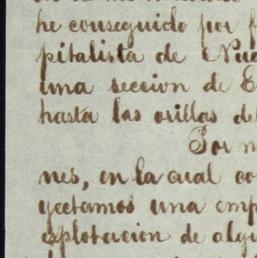 he conseguido por
pitalista de
una seccion de
hasta las orillas
Por
nes, en la cual
yectamos una
esplotacion de